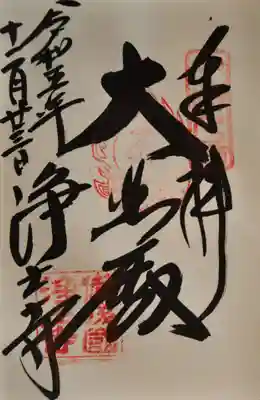 奉拝
大悲殿
浄土寺
令和五年
十一月廿三日